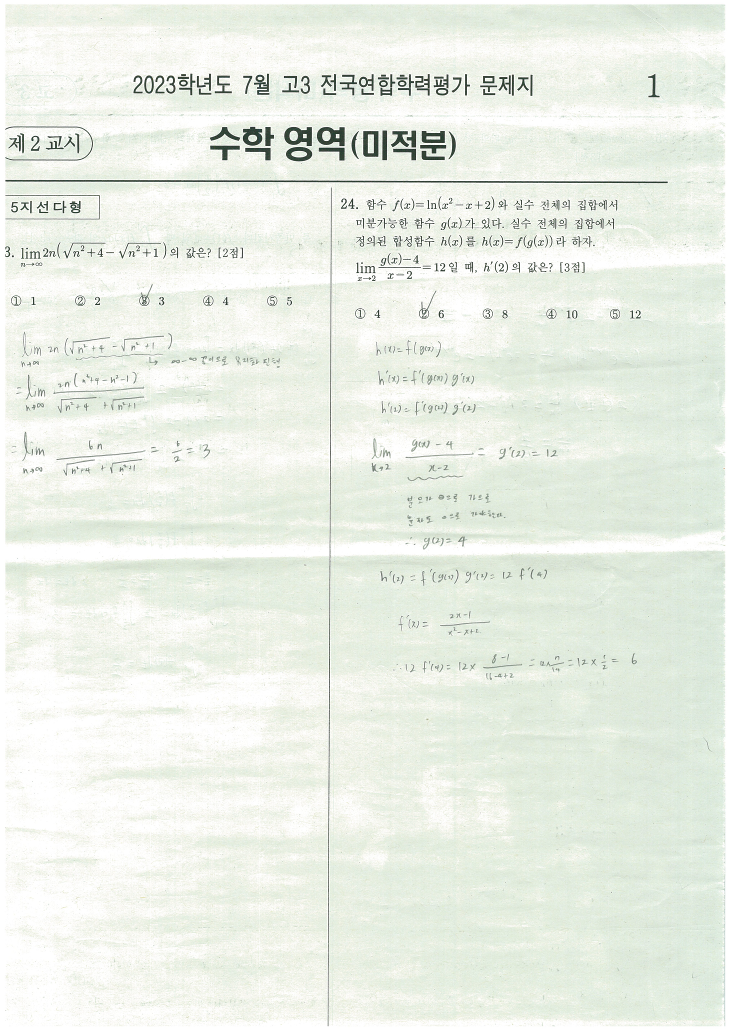 2023학년도 7월 고3 전국연합학력평가 문제지
1
제 2 교시
수학 영역(미적분)
5지선다형
3. lim n→∞ 2n(√(n²+4) − √(n²+1)) 의 값은? [2점]
① 1 ② 2 ③ 3 ④ 4 ⑤ 5
lim n→∞ 2n (√(n²+4) − √(n²+1))
↳ ∞-∞ 꼴이므로
= lim n→∞ 2n(n²+4-n²-1) / (√(n²+4) + √(n²+1))
= lim n→∞ 6n / (√(n²+4) + √(n²+1)) = 6/2 = 3
24. 함수 f(x)=ln(x²−x+2)와 실수 전체의 집합에서
미분가능한 함수 g(x)가 있다. 실수 전체의 집합에서
정의된 합성함수 h(x)를 h(x)=f(g(x))라 하자.
lim x→2 (g(x)−4)/(x−2) = 12일 때, h′(2)의 값은? [3점]
① 4 ② 6 ③ 8 ④ 10 ⑤ 12
h(x)=f(g(x))
h′(x)=f′(g(x)) g′(x)
h′(2)=f′(g(2)) g′(2)
lim x→2 (g(x)−4)/(x−2) = g′(2) = 12
분모가 0으로 가므로
분자도 0으로
∴ g(2)= 4
h′(2) = f′(g(2)) g′(2) = 12 f′(4)
f′(x) = (2x−1)/(x²−x+2)
∴ 12 f′(4) = 12× (8−1)/(16−4+2) = 12× 7/14 = 12 × 1/2 = 6